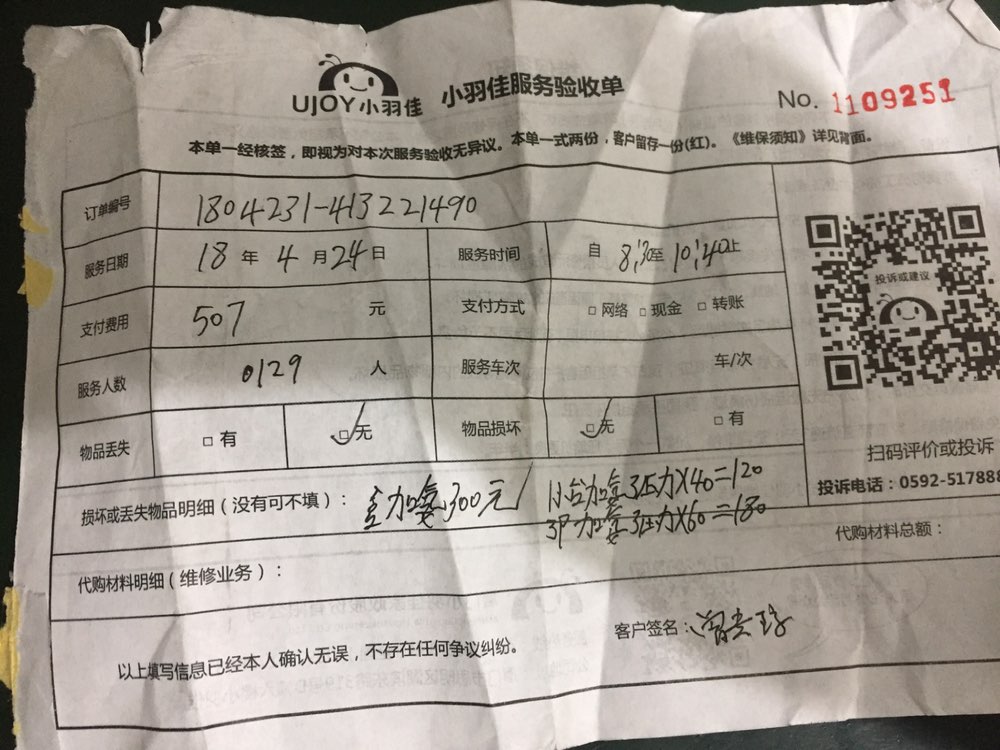 UJOY小羽佳 小羽佳服务验收单 No. 1109251
本单一经核签，即视为对本次服务验收无异议。本单一式两份，客户留存一份(红)。《维保须知》详见背面。
订单编号 1804231-413221490
服务日期 18 年 4 月 24 日 服务时间 自 8:30至 10:40止
支付费用 507 元 支付方式 □ 网络 □ 现金 □ 转账
服务人数 0129 人 服务车次 车/次
物品丢失 □ 有 □ 无 物品损坏 □ 无 □ 有
投诉或建议
扫码评价或投诉
投诉电话：0592-517888
损坏或丢失物品明细（没有可不填）： 加氨300元 加氨3压力X40=120
3P 加氨3压力X60=180
代购材料总额：
代购材料明细（维修业务）：
客户签名：
以上填写信息已经本人确认无误，不存在任何争议纠纷。